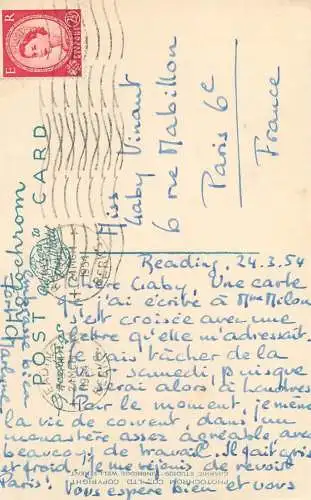 Reading, 24.3.54
Chère Gaby, Une carte
que j'ai écrite à Mme Milon
s'est croisée avec une
lettre qu'elle m'adressait.
Je vais tâcher de la
voir samedi, puisque
je serai alors à Londres
Pour le moment, je mène
la vie de couvent dans un
monastère assez agréable, avec
beaucoup de travail. Il fait gris
et froid, je me réjouis de revoir
Paris! Vous espère bien et vous
embrasse bien
Miss
Gaby Vinant
6 rue Mabillon
Paris 6e
France
POST CARD
E R
PHOTOCHROM CO. LTD. COPYRIGHT